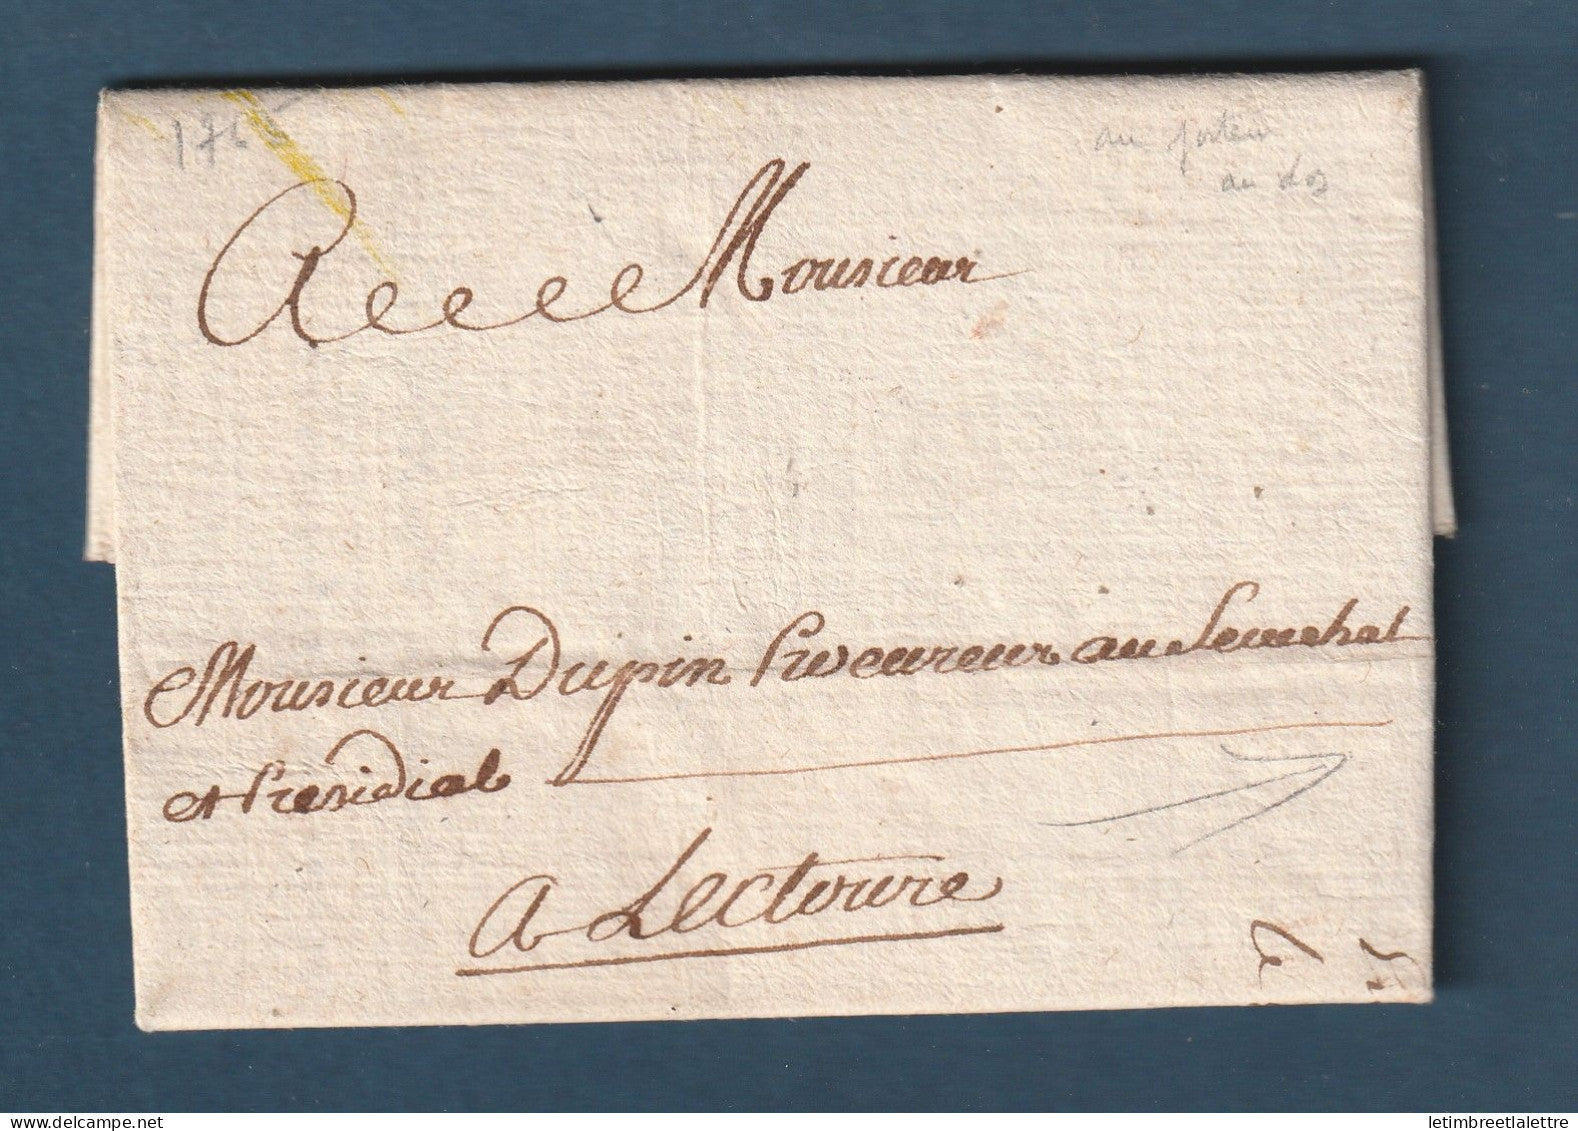 1765
au porteur
au dos
A Monsieur
Monsieur Dupin Procureur au Senechal
et Presidial
A Lectoure
letimbreetlalettre